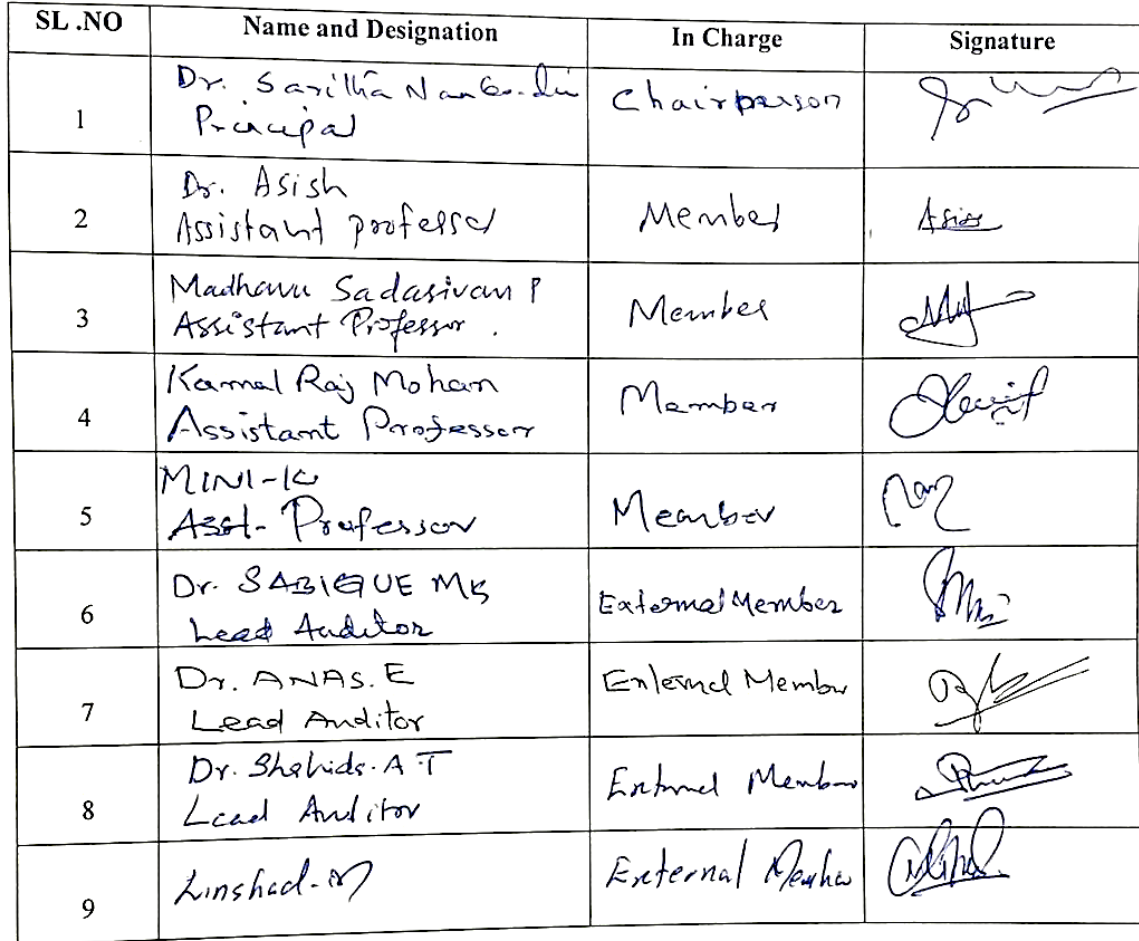 SL .NO Name and Designation In Charge Signature
1 Dr. Saritha Principal Chairperson
2 Dr. Asish Assistant professor Member Asish
3 Madhavu Sadasivan P Assistant Professor. Member
4 Kamal Raj Mohan Assistant Professor Member
5 MINI-K Asst- Professor Member
6 Dr. SABIQUE MK Lead Auditor External Member
7 Dr. ANAS. E Lead Auditor External Member
8 Dr. Shahida. A T Lead Auditor External Member
9 Linshad. M External Member